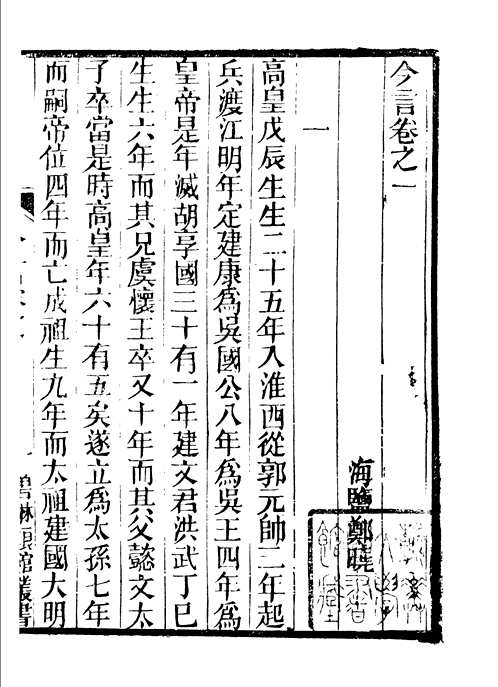 今言卷之一
海鹽鄭曉
一
高皇戊辰生生二十五年入淮西從郭元帥二年起
兵渡江明年定建康爲吳國公八年爲吳王四年爲
皇帝是年滅胡享國三十有一年建文君洪武丁巳
生生六年而其兄虞懷王卒又十年而其父懿文太
子卒當是時高皇年六十有五矣遂立爲太孫七年
而嗣帝位四年而亡成祖生九年而太祖建國大明
碧琳琅館叢書